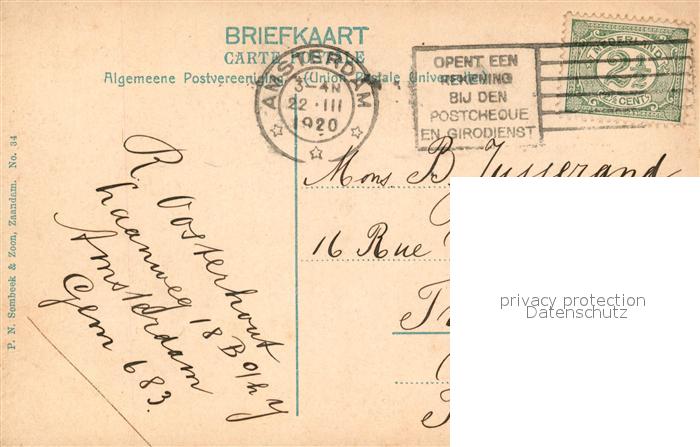 BRIEFKAART
CARTE POSTALE
Algemeene Postvereeniging (Union Postale Universelle)
AMSTERDAM
3
22 · III
1920
OPENT EEN
REKENING
BIJ DEN
POSTCHEQUE
EN GIRODIENST
NEDERLAND
2½
CENT
Mons B. Jusserand
16 Rue
R. Oosterhout
Haanweg 18 B o/h Y
Amsterdam
Gem 683.
P. N. Sombeek & Zoon, Zaandam. No. 34
privacy protection
Datenschutz